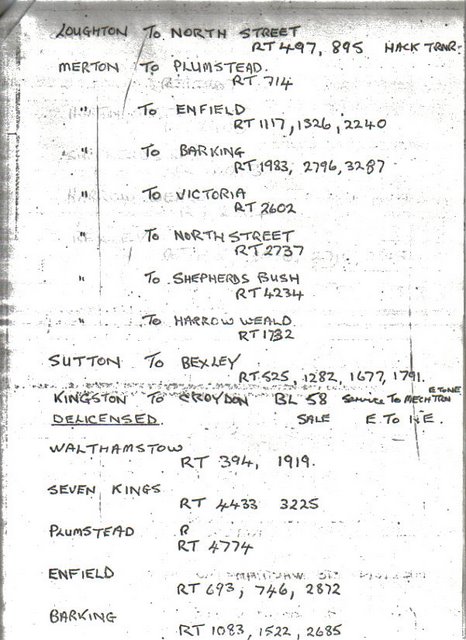 LOUGHTON To NORTH STREET
RT 497, 895 HACK TRNR.
MERTON To PLUMSTEAD.
RT 714
" To ENFIELD
RT 1117, 1326, 2240
" To BARKING
RT 1983, 2796, 3287
" To VICTORIA
RT 2602
" To NORTH STREET
RT 2737
" To SHEPHERDS BUSH
RT 4234
" To HARROW WEALD.
RT 1732
SUTTON To BEXLEY
RT 525, 1282, 1677, 1791.
E TO NE
KINGSTON To CROYDON BL 58 Service To MECH TRN
DELICENSED. SALE E. To N E.
WALTHAMSTOW
RT 394, 1919.
SEVEN KINGS
RT 4433 3225
PLUMSTEAD R
RT 4774
ENFIELD
RT 693, 746, 2872
BARKING
RT 1083, 1522, 2685